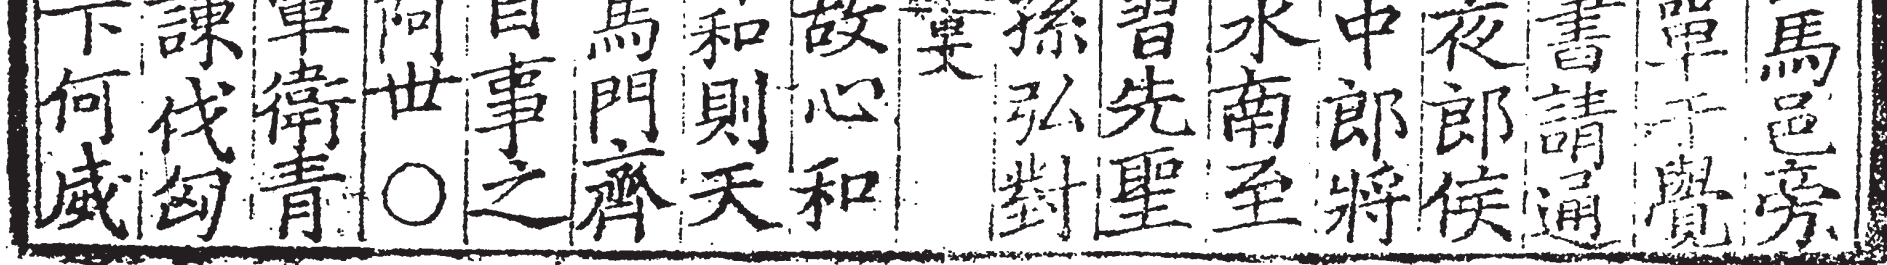 馬邑旁
單于覺
書請通
夜郎侯
中郎將
水南至
習先聖
孫弘對
故心和
和則天
馬門齊
目事之
阿世○
軍衛青
諫伐匈
下何威